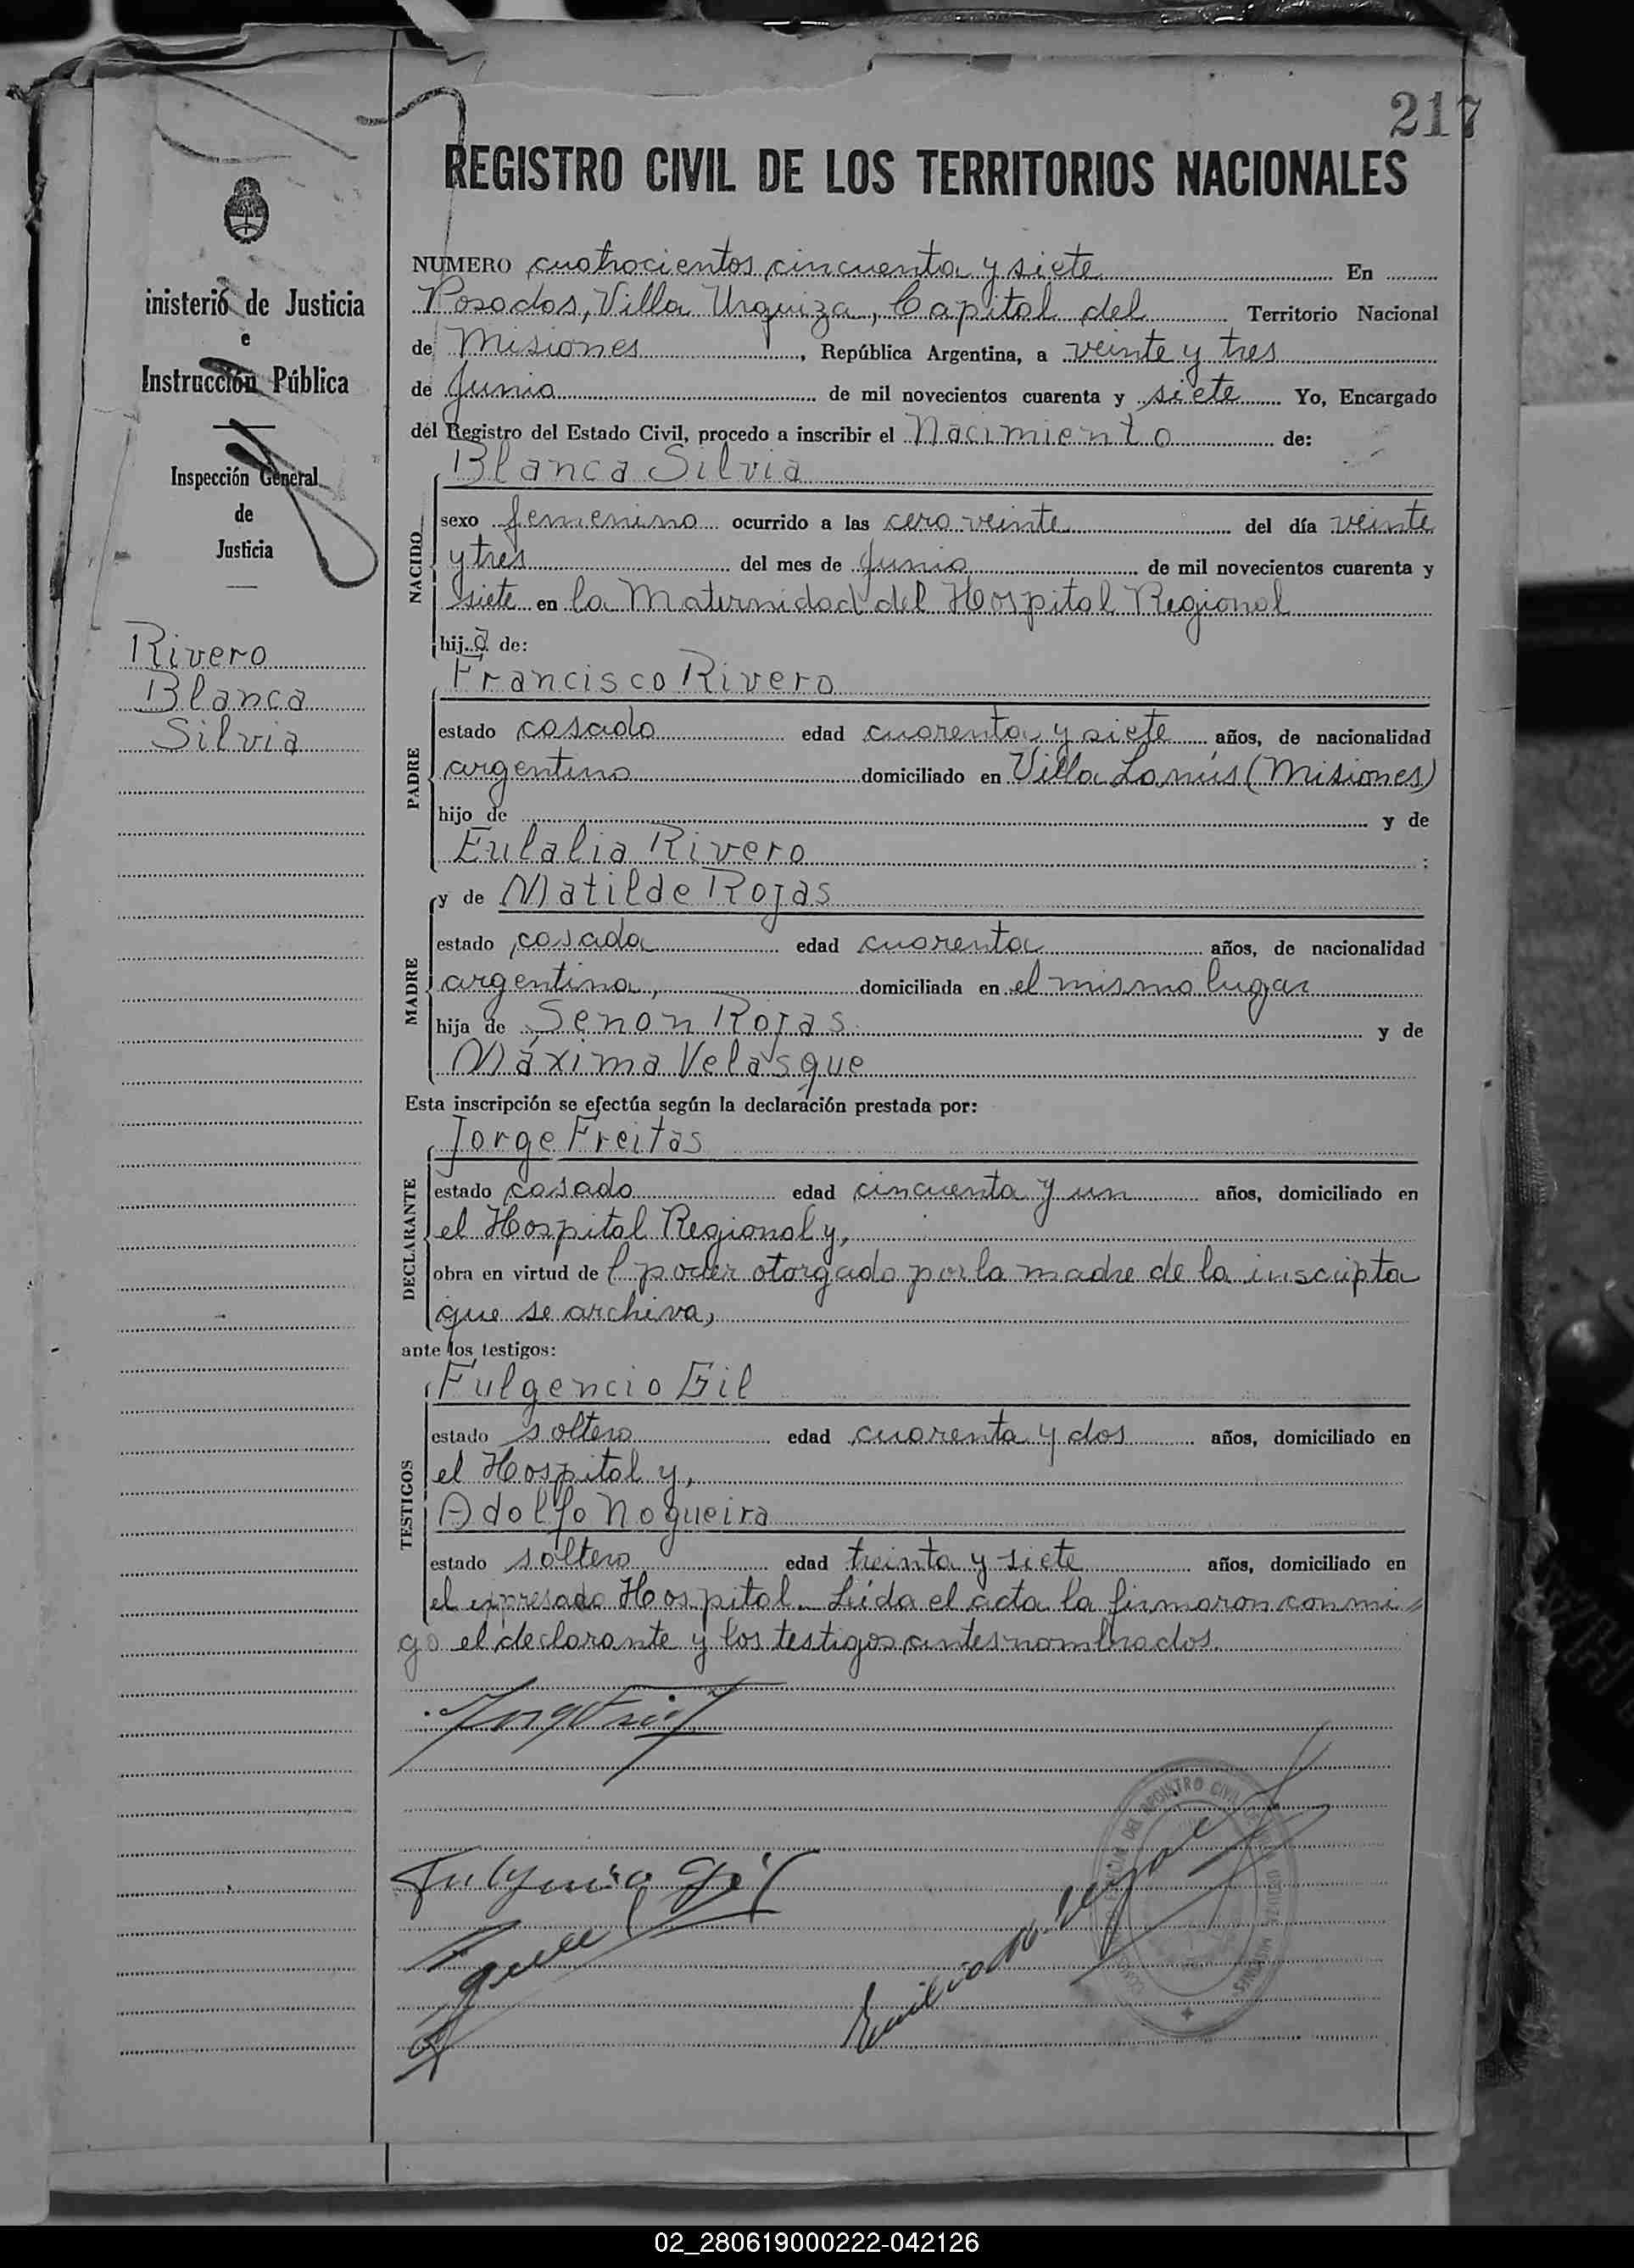 217
REGISTRO CIVIL DE LOS TERRITORIOS NACIONALES
inisterio de Justicia
e
Instrucción Pública
Inspección General
de
Justicia
Rivero
Blanca
Silvia
NUMERO cuatrocientos cincuenta y siete En
Posadas, Villa Urquiza, Capital del Territorio Nacional
de Misiones, República Argentina, a veinte y tres
de Junio de mil novecientos cuarenta y siete Yo, Encargado
del Registro del Estado Civil, procedo a inscribir el Nacimiento de:
Blanca Silvia
NACIDO
sexo femenino ocurrido a las cero veinte del día veinte
y tres del mes de Junio de mil novecientos cuarenta y
siete en la Maternidad del Hospital Regional
hija de:
Francisco Rivero
PADRE
estado casado edad cuarenta y siete años, de nacionalidad
argentino domiciliado en Villa Lanús (Misiones)
hijo de y de
Eulalia Rivero ;
y de Matilde Rojas
MADRE
estado casada edad cuarenta años, de nacionalidad
argentina, domiciliada en el mismo lugar
hija de Senon Rojas y de
Máxima Velasque
Esta inscripción se efectúa según la declaración prestada por:
Jorge Freitas
DECLARANTE
estado casado edad cincuenta y un años, domiciliado en
el Hospital Regional y,
obra en virtud del poder otorgado por la madre de la inscripta
que se archiva,
ante los testigos:
Fulgencio Gil
TESTIGOS
estado soltero edad cuarenta y dos años, domiciliado en
el Hospital y,
Adolfo Nogueira
estado soltero edad treinta y siete años, domiciliado en
el expresado Hospital. Leída el acta la firmaron conmi=
go el declarante y los testigos antes nombrados.
Fulgencio Gil
REGISTRO CIVIL
MISIONES
02_280619000222-042126